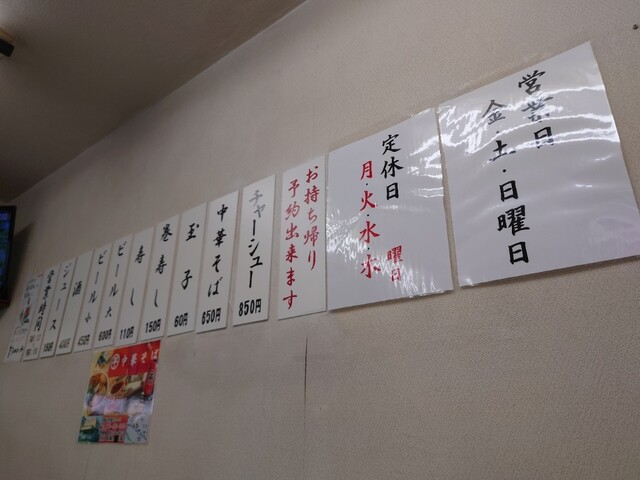 営業日
金・土・日曜日
定休日
月・火・水・木
曜日
お持ち帰り
予約出来ます
チャーシュー
850円
中華そば
650円
玉子
60円
巻寿し
150円
寿し
110円
ビール大
600円
ビール小
450円
酒
400円
ジュース
150円
営業時間
中華そば